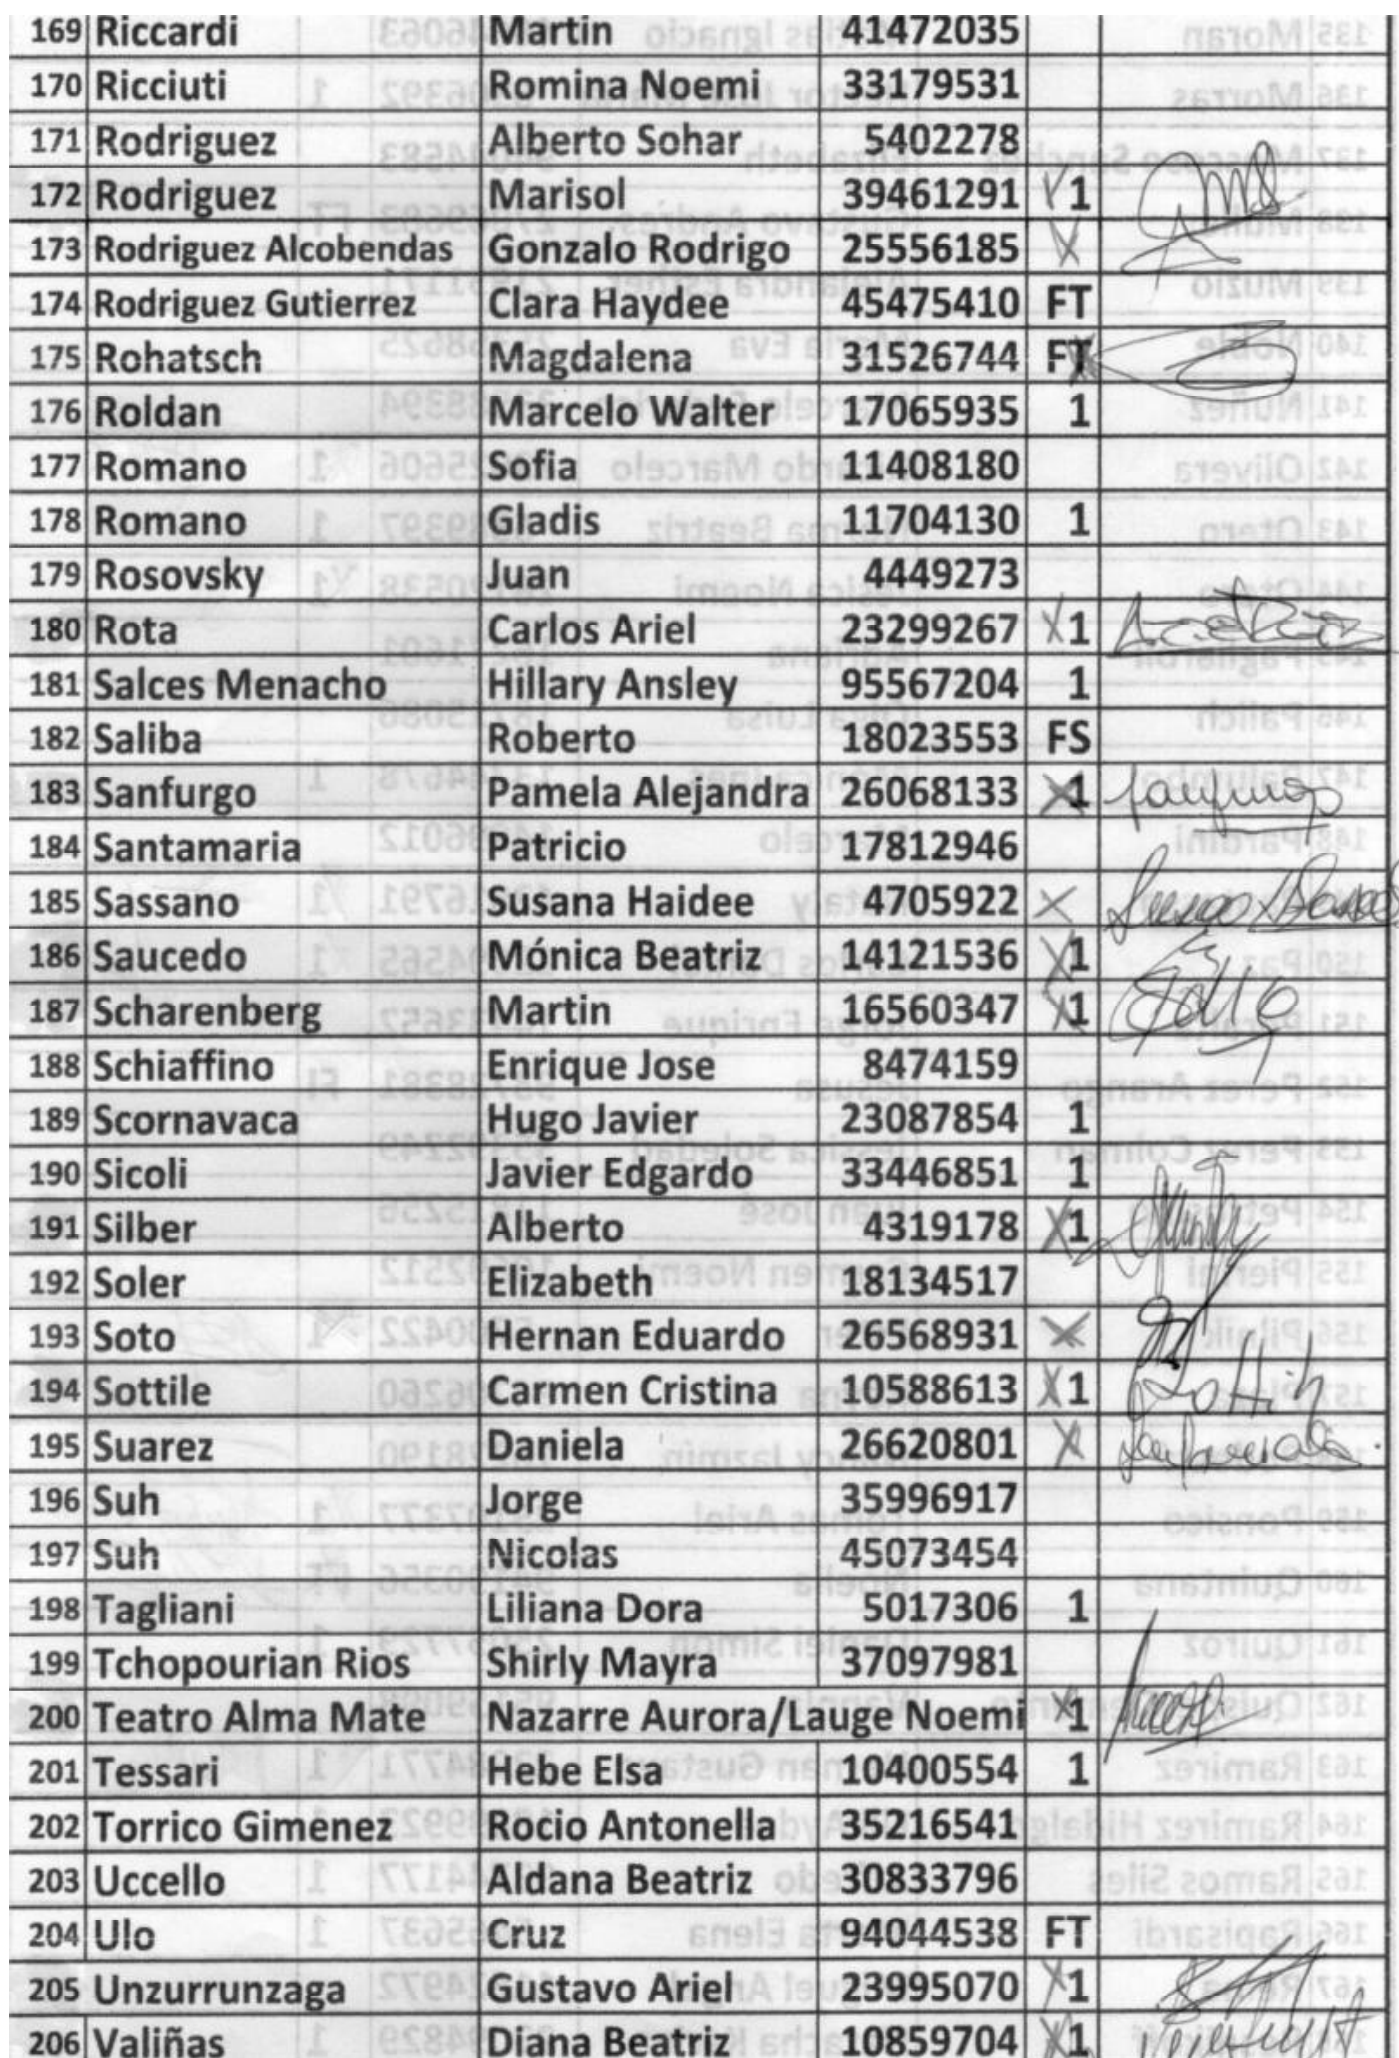 169 Riccardi Martin 41472035
170 Ricciuti Romina Noemi 33179531
171 Rodriguez Alberto Sohar 5402278
172 Rodriguez Marisol 39461291 1
173 Rodriguez Alcobendas Gonzalo Rodrigo 25556185 X
174 Rodriguez Gutierrez Clara Haydee 45475410 FT
175 Rohatsch Magdalena 31526744 FT
176 Roldan Marcelo Walter 17065935 1
177 Romano Sofia 11408180
178 Romano Gladis 11704130 1
179 Rosovsky Juan 4449273
180 Rota Carlos Ariel 23299267 X 1
181 Salces Menacho Hillary Ansley 95567204 1
182 Saliba Roberto 18023553 FS
183 Sanfurgo Pamela Alejandra 26068133 X 1
184 Santamaria Patricio 17812946
185 Sassano Susana Haidee 4705922 X
186 Saucedo Mónica Beatriz 14121536 X 1
187 Scharenberg Martin 16560347 X 1
188 Schiaffino Enrique Jose 8474159
189 Scornavaca Hugo Javier 23087854 1
190 Sicoli Javier Edgardo 33446851 1
191 Silber Alberto 4319178 X 1
192 Soler Elizabeth 18134517
193 Soto Hernan Eduardo 26568931 X
194 Sottile Carmen Cristina 10588613 X 1
195 Suarez Daniela 26620801 X
196 Suh Jorge 35996917
197 Suh Nicolas 45073454
198 Tagliani Liliana Dora 5017306 1
199 Tchopourian Rios Shirly Mayra 37097981
200 Teatro Alma Mate Nazarre Aurora/Lauge Noemi X 1
201 Tessari Hebe Elsa 10400554 1
202 Torrico Gimenez Rocio Antonella 35216541
203 Uccello Aldana Beatriz 30833796
204 Ulo Cruz 94044538 FT
205 Unzurrunzaga Gustavo Ariel 23995070 X 1
206 Valiñas Diana Beatriz 10859704 X 1